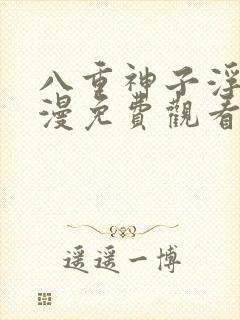 八重神子浮
漫免費觀看
遥遥一博